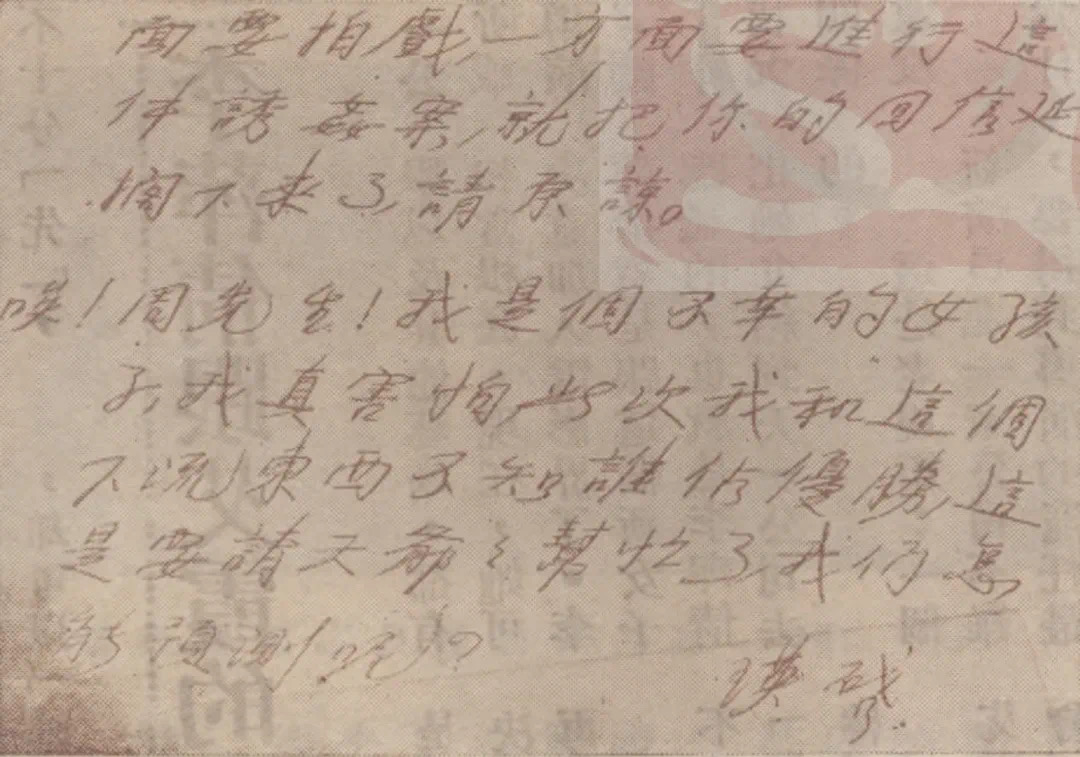 面要拍戲,一方面要進行這
件誘姦案,就把你的回信延
擱下來了,請原諒。
唉!周先生!我是個不幸的女孩
子,我真害怕,此次我和這個
下流東西不知誰佔優勝,這
是要請天爺爺幫忙了,我們怎
能預測呢?
瑛